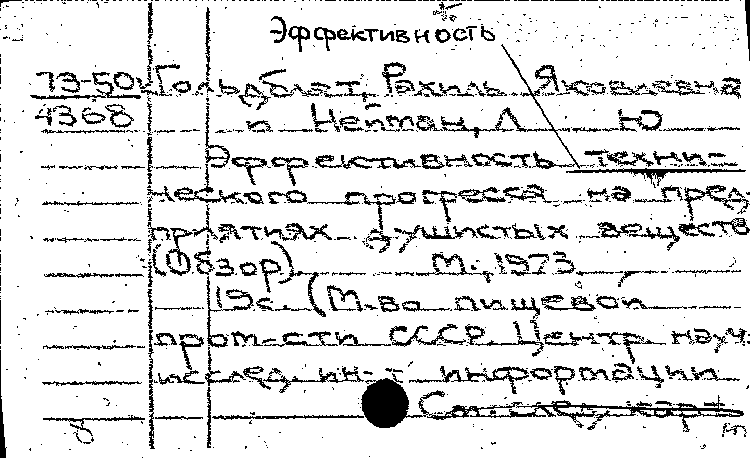 Эффективность
73-50к Гольдблат, Рахиль Яковлевна
4368 и Нейман, Л Ю
Эффективность техни-
ческого прогресса на пред-
приятиях душистых веществ
(Обзор). М., 1973.
19с. (М-во пищевой
пром-сти СССР. Центр. науч.-
исслед. ин-т информации
См. след. карт
8